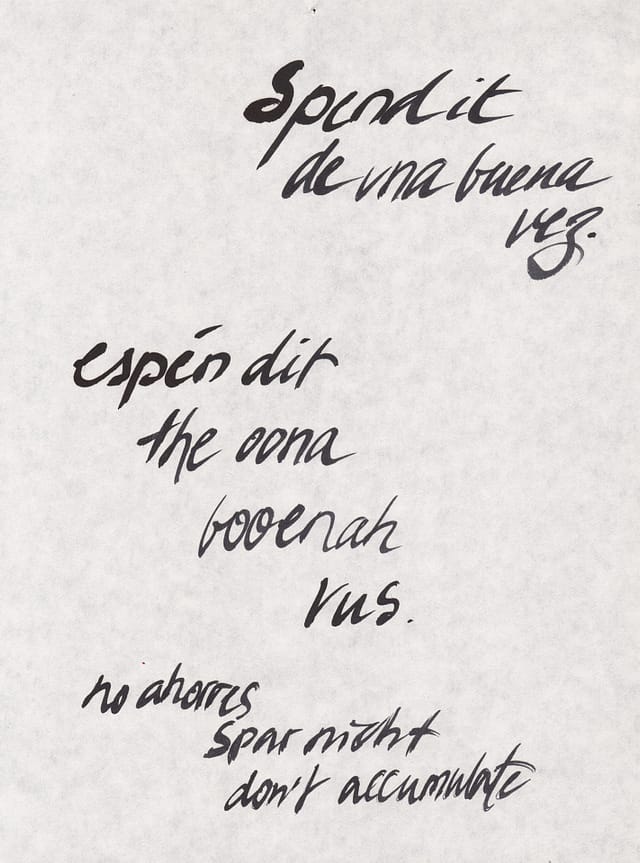 Spend it
de una buena
vez.
espén dit
the oona
booenah
vus.
no ahorres
spar nicht
don't accumulate